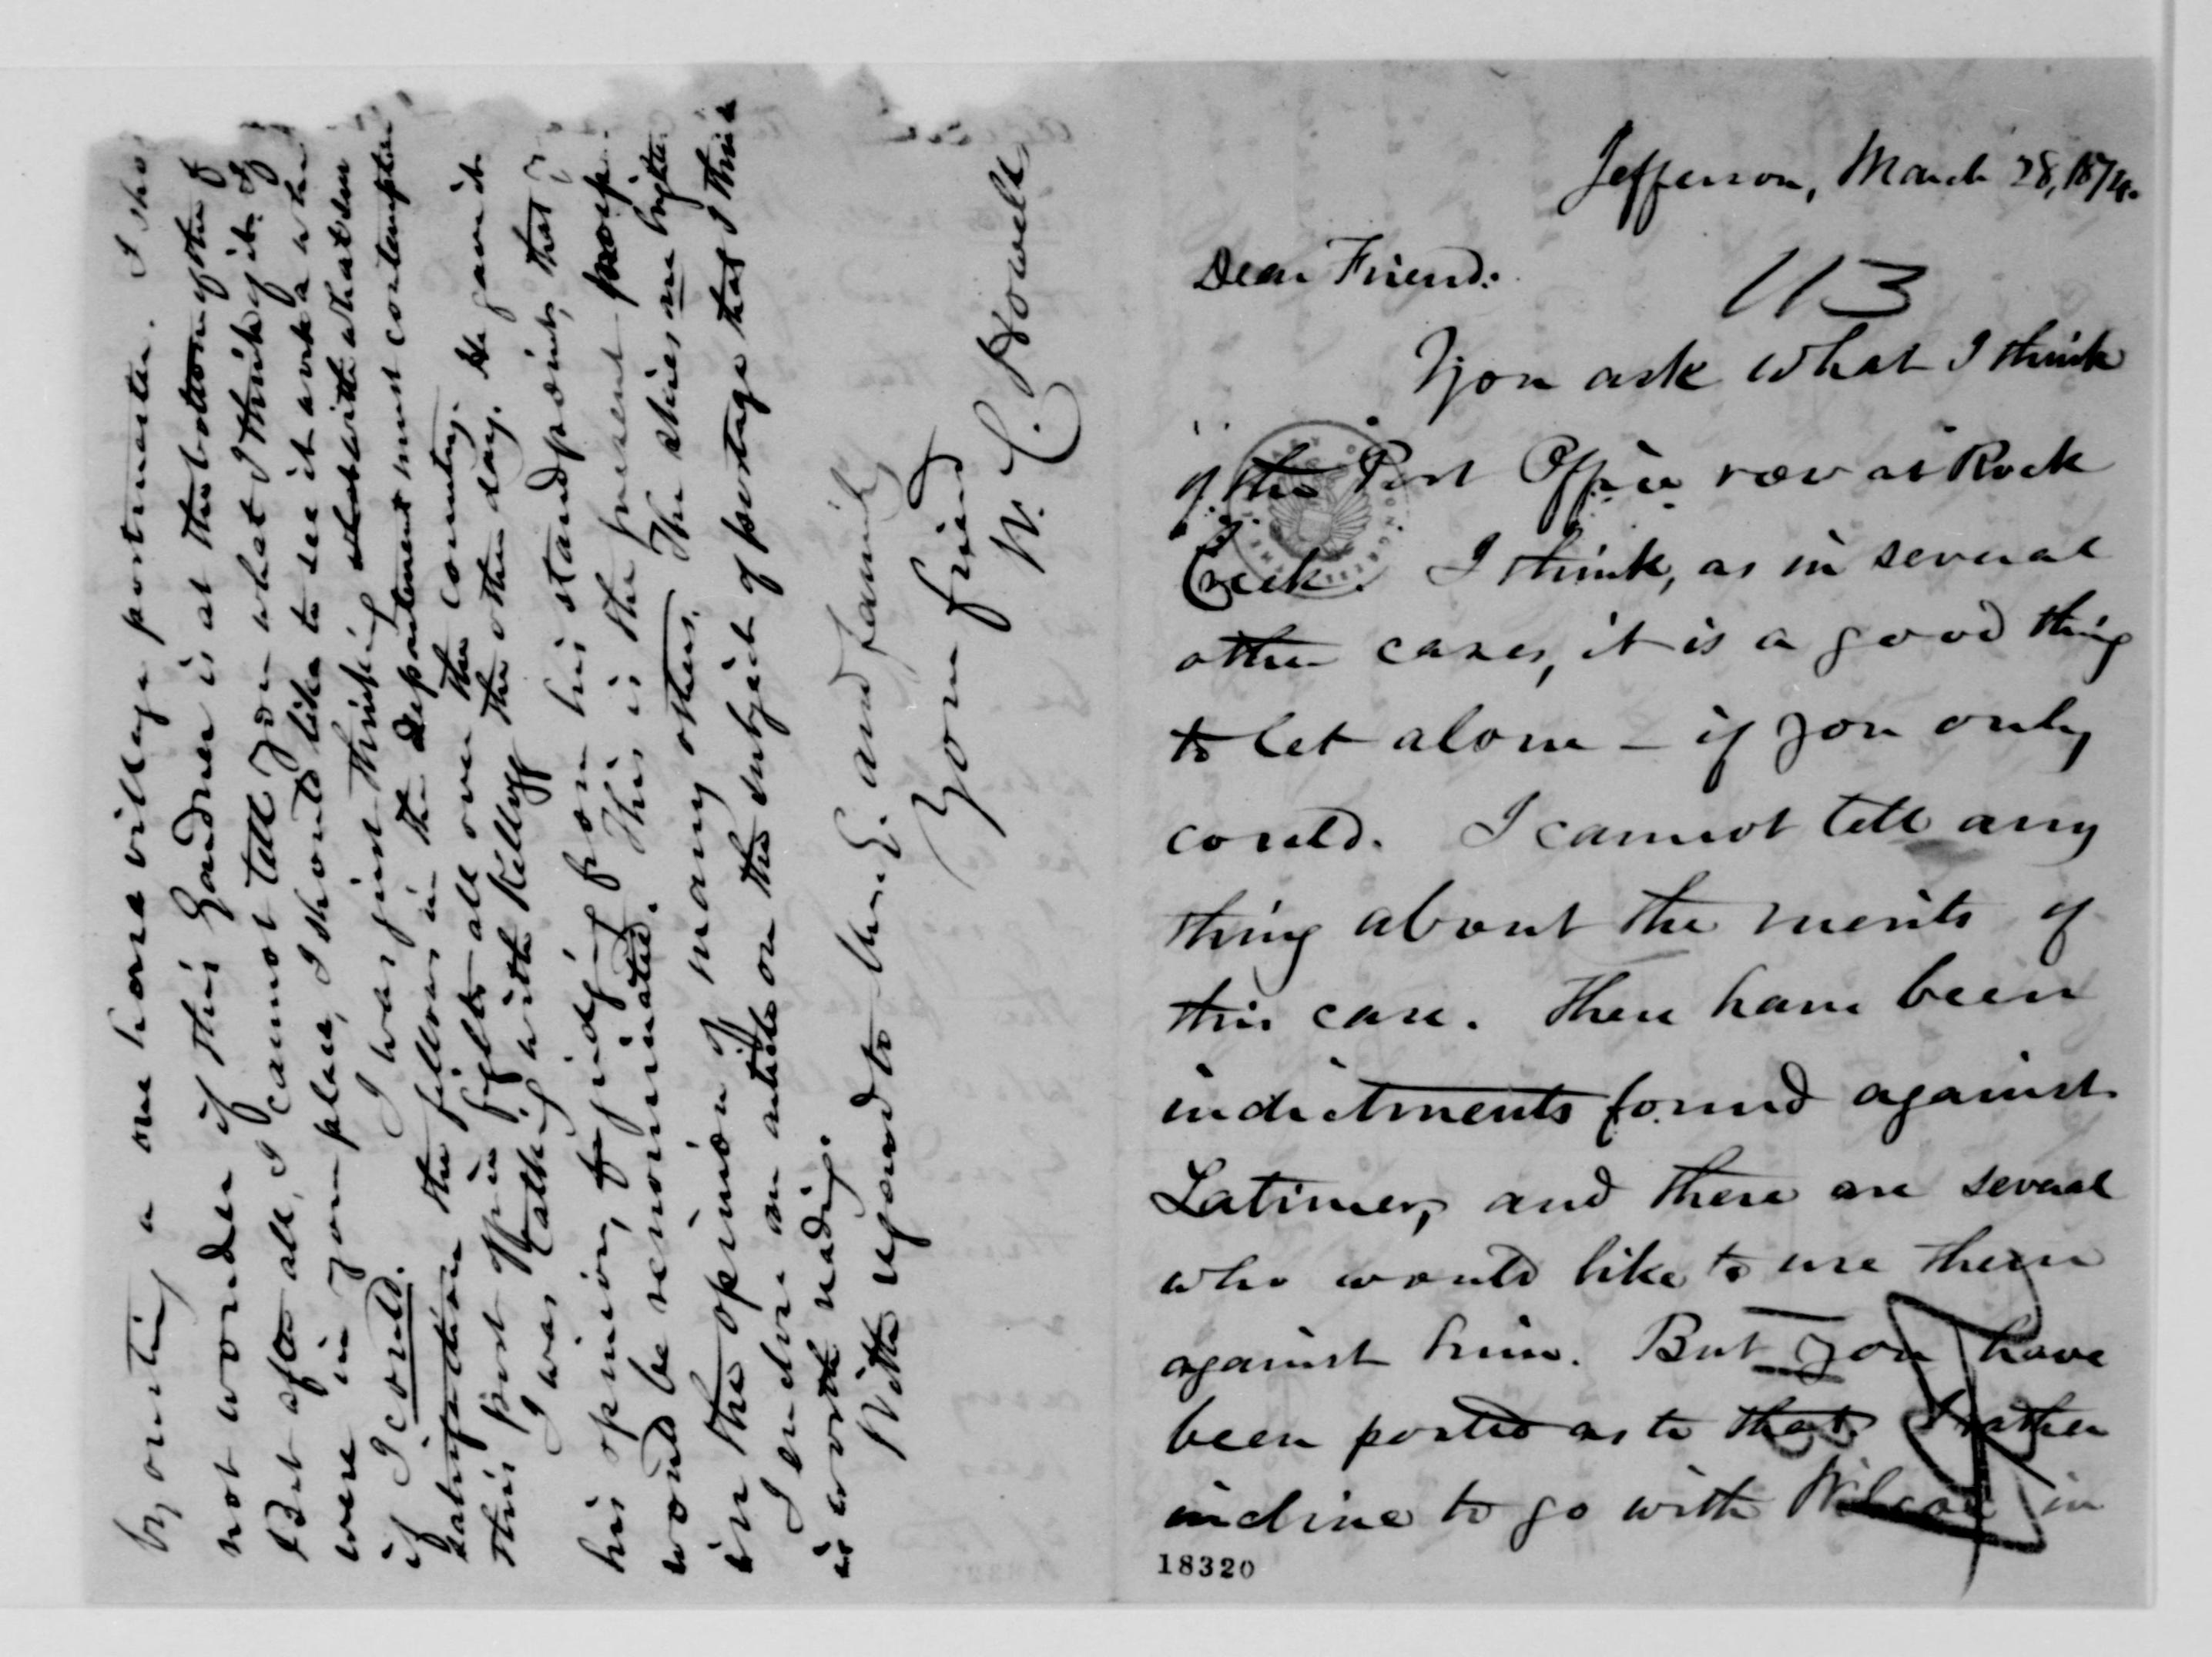 Jefferson, March 28, 1874.
Dear Friend:
113
You ask what I think
of the Post Office row at Rock
Creek. I think, as in several
other cases, it is a good thing
to let alone – if you only
could. I cannot tell any
thing about the merits of
this case. There have been
indictments found against
Latimer, and there are several
who would like to use them
against him. But you have
been posted as to that. I rather
incline to go with Wilcox in
18320
by outing a one horse village postmaster. I sho
not wonder if this Gardner is at the bottom of the
But after all, I cannot tell you what I think of it. If
were in your place, I should like to see it work a whi
if I could.
I was just thinking what with what
satisfaction the fellows in the department must contemplate
this post office fights all over the country.
I was talking with Kellogg the other day. He gave it
his opinion, judging from his standpoint, that
would be renominated. This is the present
in the opinion of many others. The skies are brighter
I enclose an article on the subject of postage that I think
is worth reading.
With regards to Mrs. G. and family
Your friend
W. C. Howells